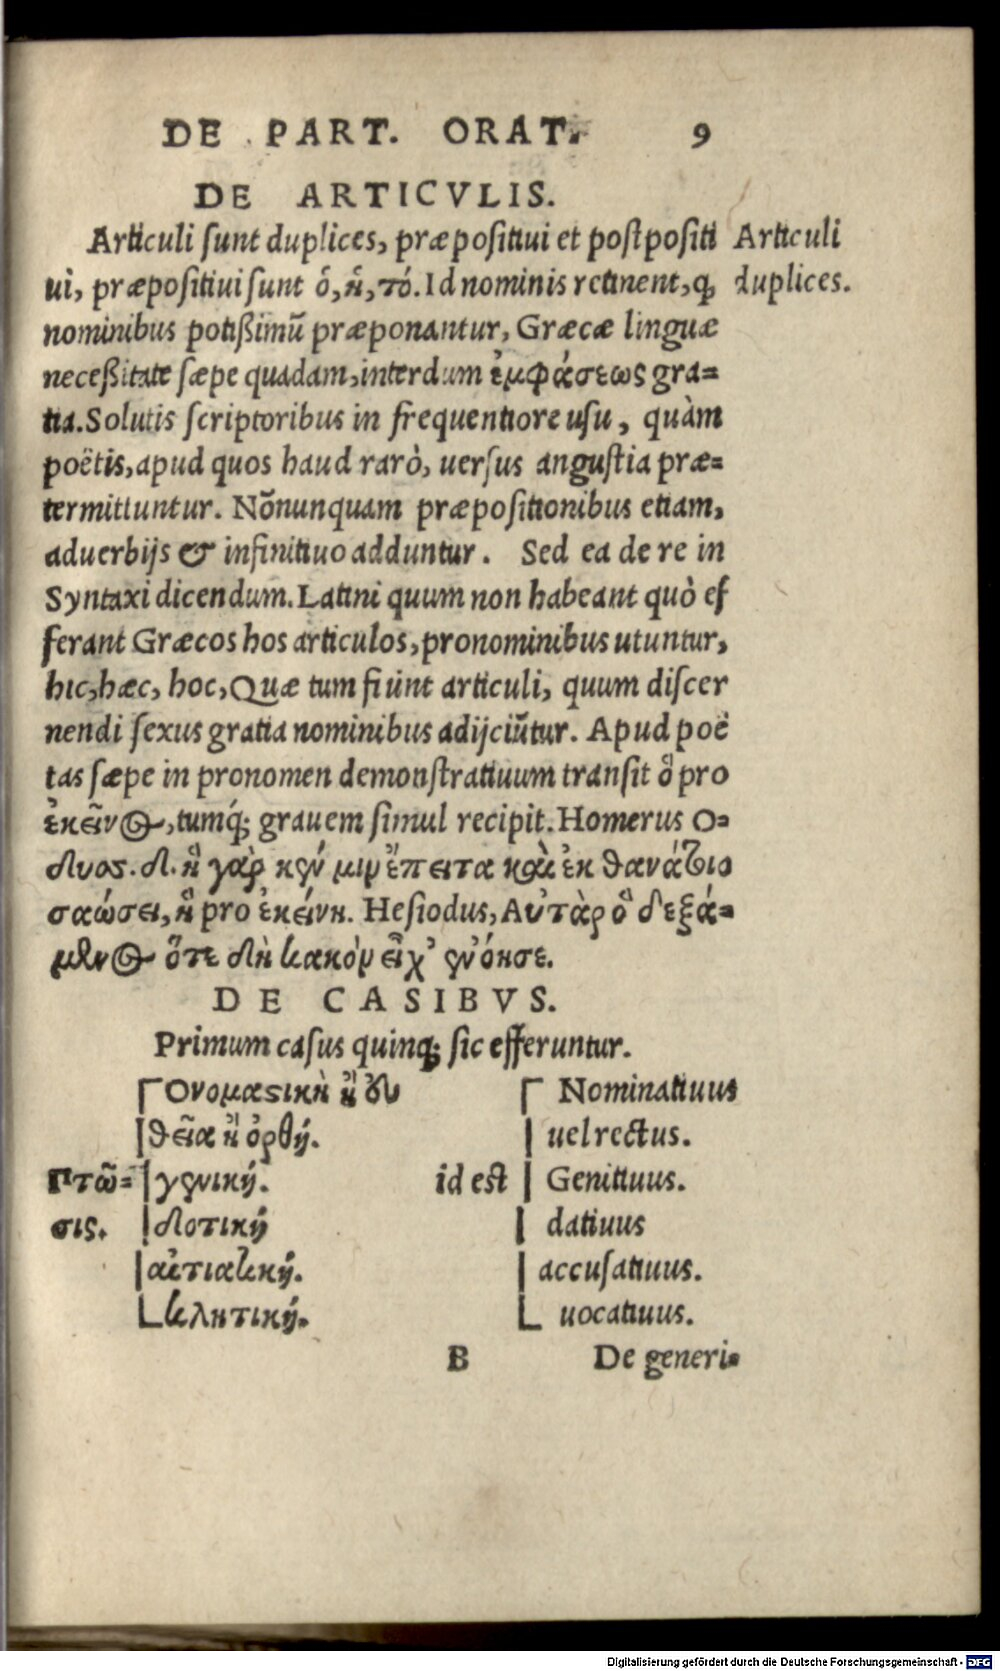 DE PART. ORAT. 9
DE ARTICVLIS.
Articuli sunt duplices, præpositiui et postpositi
Articuli
ui, præpositiui sunt ὁ, ἡ, τό. Id nominis retinent, ꝙ
duplices.
nominibus potißimū præponantur, Græcæ linguæ
neceßitate sæpe quadam, interdum ἐμφάσεως gra=
tia. Solutis scriptoribus in frequentiore usu, quàm
poëtis, apud quos haud rarò, uersus angustia præ=
termittuntur. Nōnunquam præpositionibus etiam,
aduerbijs & infinitiuo adduntur. Sed ea de re in
Syntaxi dicendum. Latini quum non habeant quò ef
ferant Græcos hos articulos, pronominibus utuntur,
hic, hæc, hoc, Quæ tum fiunt articuli, quum discer
nendi sexus gratia nominibus adijciūtur. Apud poë
tas sæpe in pronomen demonstratiuum transit ὃ pro
ἐκεῖνος, tumq́; grauem simul recipit. Homerus Ο=
δυος. δ. ἣ γάρ κεν μιν ἔπειτα καὶ ἐκ θανάτοιο
σαώσει, ἣ pro ἐκείνη. Hesiodus, Αὐτὰρ ὃ δεξά=
μενος ὅτε δὴ κακὸν εἶχ’ ἐνόησε.
DE CASIBVS.
Primum casus quinq; sic efferuntur.
Ονομαστικὴ ἢ ευ
Nominatiuus
θεῖα ἢ ὀρθή.
uel rectus.
Πτῶ=
γενική.
id est
Genitiuus.
σις.
δοτική
datiuus
αἰτιατική.
accusatiuus.
κλητική.
uocatiuus.
B
De generi=
Digitalisierung gefördert durch die Deutsche Forschungsgemeinschaft - DFG